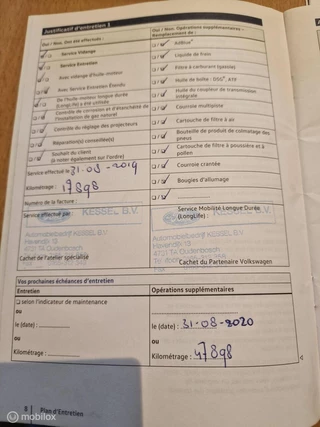 Justificatif d'entretien 1
Oui / Non. Ont été effectués :
Service Vidange
Service Entretien
Avec vidange d'huile moteur
Avec Service Entretien Étendu
De l'huile moteur longue durée (LongLife) a été utilisée
Contrôle de corrosion et d'étanchéité de l'installation de gaz naturel
Contrôle du réglage des projecteurs
Réparation(s) conseillée(s)
Souhait du client
(à noter également sur l'ordre)
Service effectué le : 31-08-2019
Kilométrage : 17898
Numéro de la facture :
Service effectué par :
KESSEL B.V.
Automobielbedrijf KESSEL BV
Havendijk 19
4721 TA
Cachet de l'atelier spécialisé
Oui / Non. Opérations supplémentaires –
Remplacement de :
AdBlue®
Liquide de frein
Filtre à carburant (gazole)
Huile de boîte : DSG®, ATF
Huile du coupleur de transmission intégrale
Courroie multipiste
Cartouche de filtre à air
Bouteille de produit de colmatage des pneus
Cartouche de filtre à poussière et à pollen
Courroie crantée
Bougies d'allumage
Service Mobilité Longue Durée
(LongLife) :
KESSEL B.V.
Automobielbedrijf KESSEL BV
Havendijk 19
4721 TA
Cachet du Partenaire Volkswagen
Vos prochaines échéances d'entretien
Entretien
Opérations supplémentaires
selon l'indicateur de maintenance
ou
le (date) :
ou
Kilométrage :
le (date) : 31-08-2020
ou
Kilométrage : 47898
8 | Plan d'Entretien
mobilox